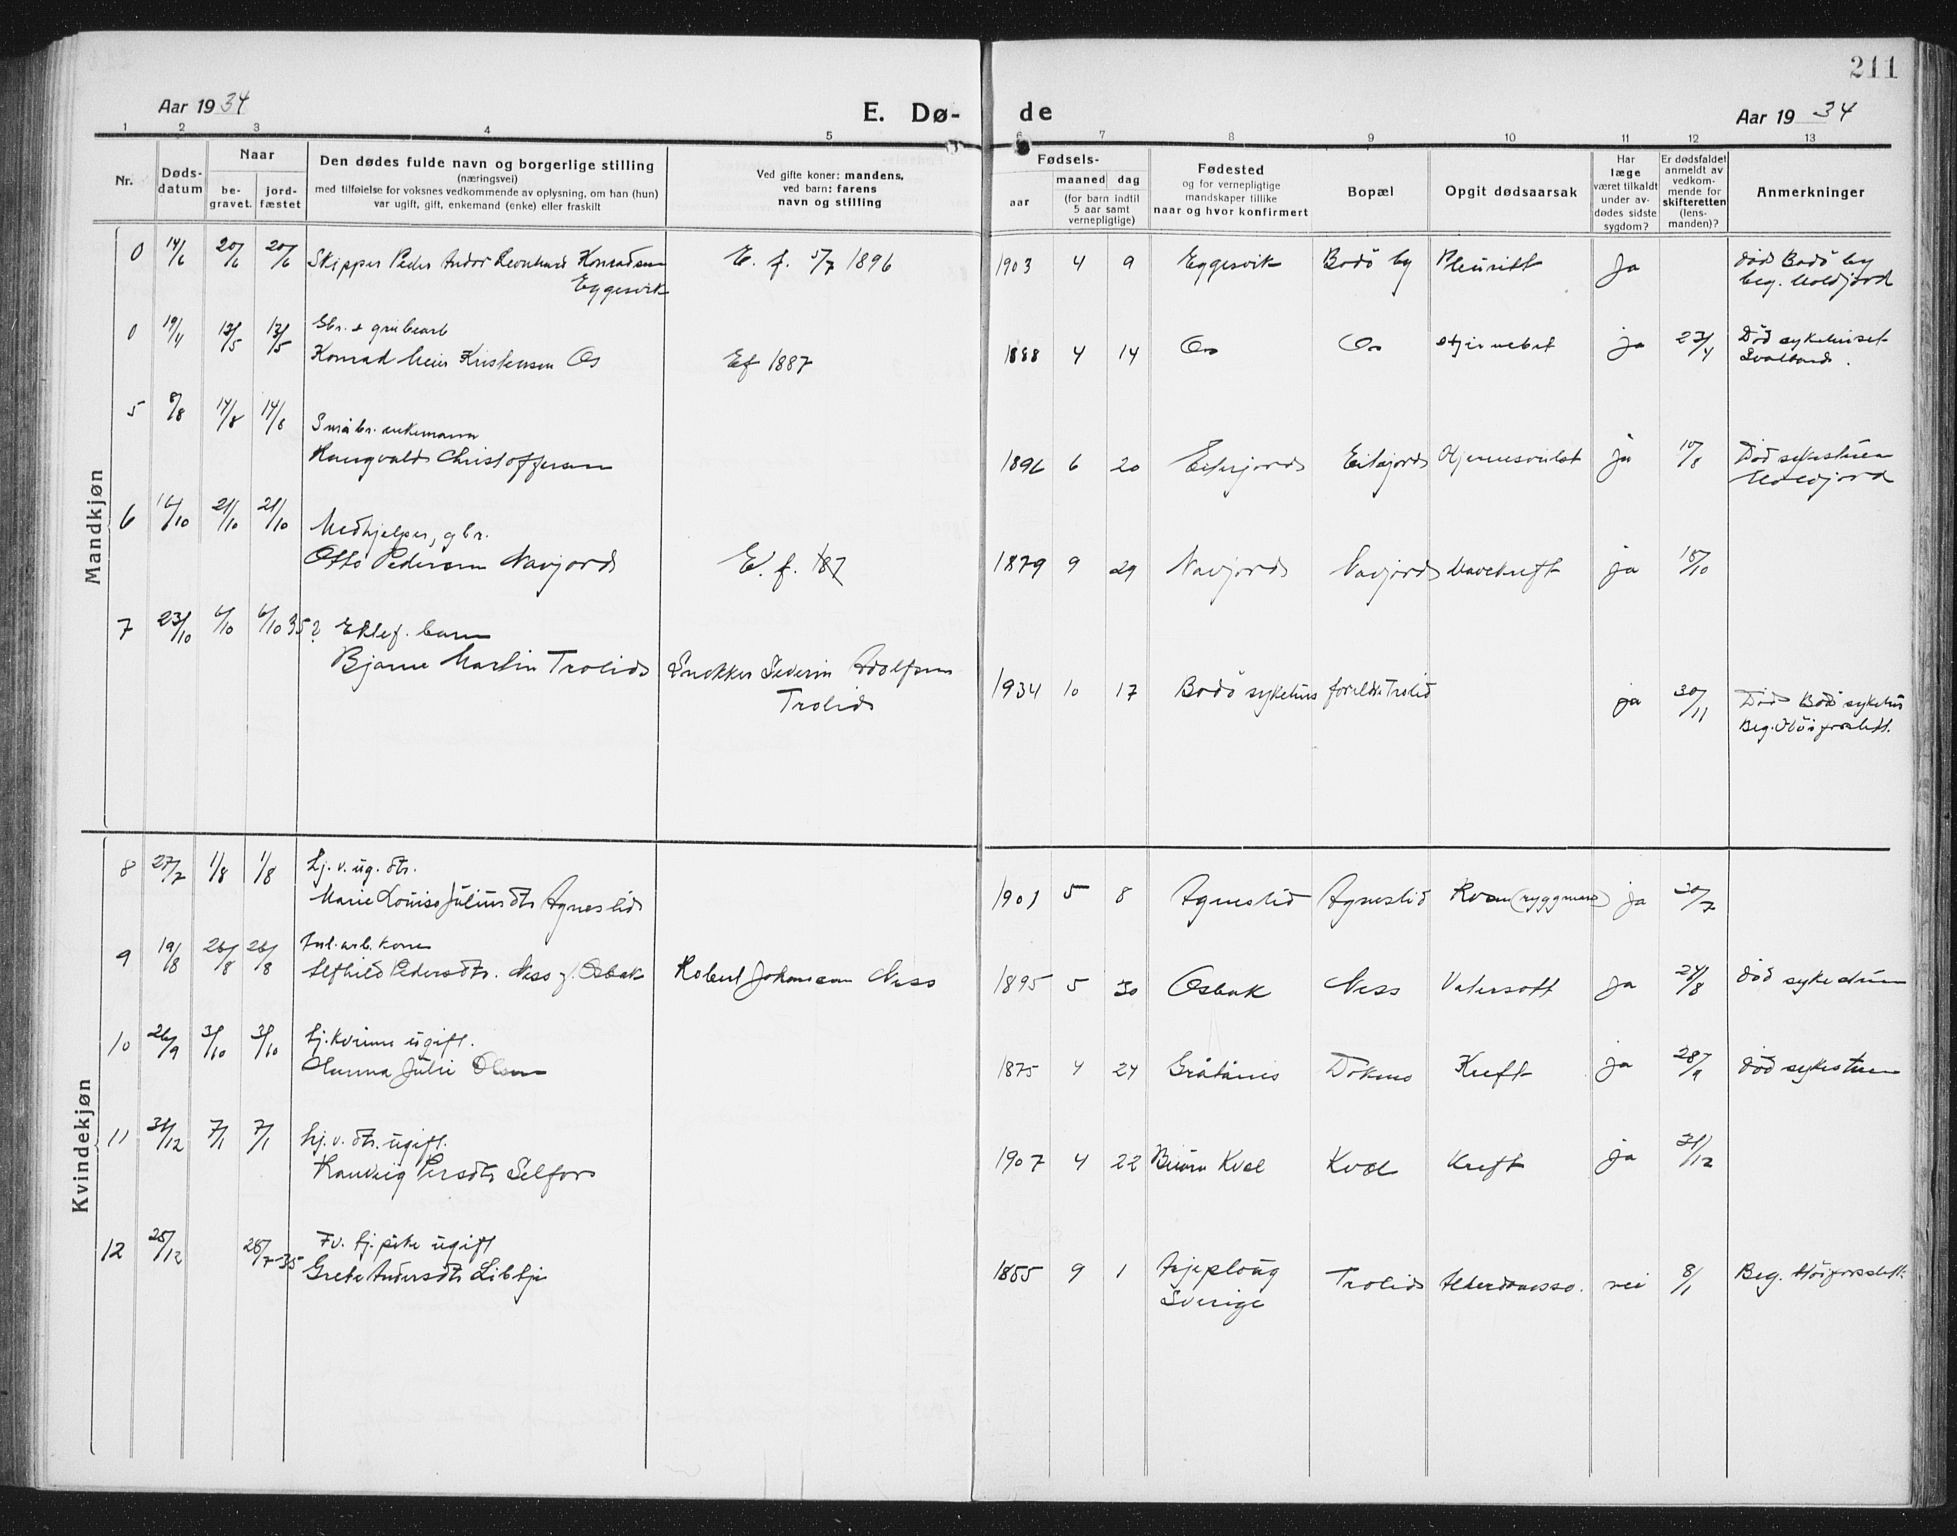 211
Aar 19 34
E. Dø-
de
Aar 19 34
1 2 3 4 5 6 7 8 9 10 11 12 13
Nr.
Døds-
datum
Naar
be-
gravet.
jord-
fæstet
Den dødes fulde navn og borgerlige stilling
(næringsvei)
med tilføielse for voksnes vedkommende av oplysning, om han (hun)
var ugift, gift, enkemand (enke) eller fraskilt
Ved gifte koner: mandens,
ved barn: farens
navn og stilling
Fødsels-
aar
maaned dag
(for barn indtil
5 aar samt
vernepligtige)
Fødested
og for vernepligtige
mandskaper tillike
naar og hvor konfirmert
Bopæl
Opgit dødsaarsak
Har
læge
været tilkaldt
under av-
dødes sidste
sygdom?
Er dødsfaldet
anmeldt av
vedkom-
mende for
skifteretten
(lens-
manden)?
Anmerkninger
Mandkjøn
0 14/6 20/6 20/6 Skipper Peder Andor Konradsen
Eggesvik
E. f. 5/7 1896
1903 4 9 Eggesvik Bodö by Pleuritt Ja död Bodö by
beg.
0 19/4 13/5 13/5 Gbr. & grubearb
Konrad Meier Kristensen Os
Ef 1887
1888 4 14 Os Os ja 23/4 Död sykehuset
Svalbard.
5 8/8 14/8 14/8 Småbr. enkemann
Rangvald Christoffersen
1896 6 20 ja 10/8 Död sykestuen
6 21/10 21/10 Medhjelper, gbr.
Otto Pedersen Navjord
E. f. 187
1879 9 29 Navjord Navjord Mavekreft ja 18/10
7 23/10 6/10 6/10 35? Ektef. barn
Bjarne Martin Trolid
Snekker Severin Adolfsen
Trolid
1934 10 17 Bodö sykehus foreldr. Trolid ja 30/11 Död Bodö sykehus
Beg.
Kvindekjøn
8 27/7 1/8 1/8 hj. v. ug. dtr.
Marie Louise Juliusdtr Agneslid
1901 5 8 Agneslid Agneslid (ryggmarv) ja 30/7
9 19/8 26/8 26/8 kone
Alfhild Pedersdtr. Ness f. Osbak
Robert Johansen Ness
1895 5 30 Osbak Ness Vatersott Ja död sykestuen
10 26/9 3/10 3/10 hj. kvinne ugift.
Hanna Julie Olsen
1875 4 24 Kreft ja 28/9 död sykestuen
11 7/1 7/1 hj. v. dtr. ugift.
Hanveig Persdtr Selfors
1907 4 22 Kvæl Kreft ja 31/12
12 25/12 28/7-35 Fv. hj. pike ugift
Grete Andersdtr Libbje
1855 9 1 Arjeploug
Sverige
Trolid nei 8/1 Beg.